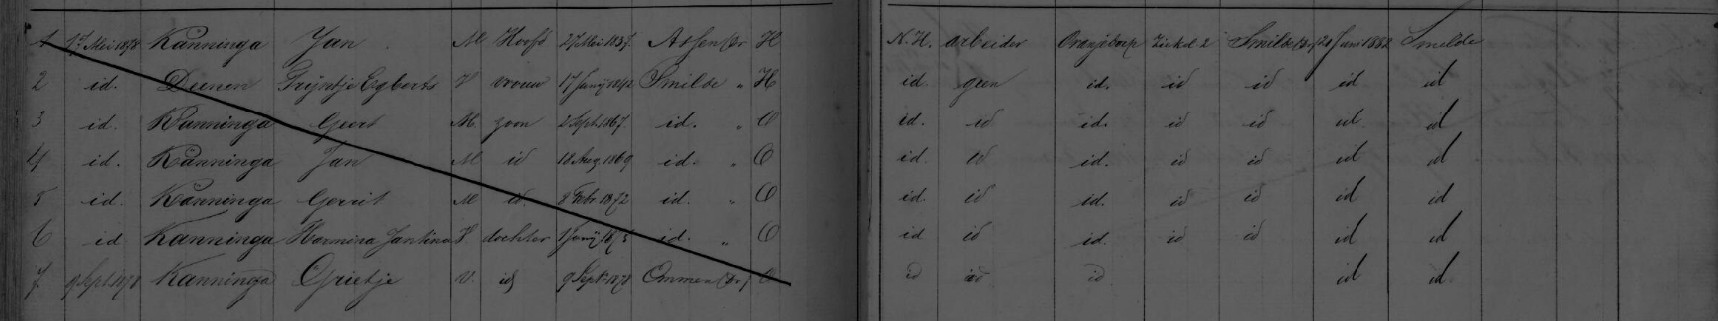 1 17 Mei 1878 Kanninga Jan M Hoofd 27 Mei 1837 Assen Dr H N.H. arbeider Oranjedorp Zuid 2 Smilde 20 Juni 1882 Smilde
2 id. Deenen Trijntje Egberts V vrouw 17 Smilde " H id geen id. id id id id
3 id. Kanninga Geert M. zoon 2 Sept. 1867. id. " O id. id id. id id id id
4 id. Kanninga Jan M id 18 Aug. 1869 id. " O id. id id. id id id id
5 id. Kanninga Gerrit M id 9 Febr. 1872 id. " O id. id id. id id id id
6 id Kanninga Harmina Jantina V dochter id. " O id id id. id id id id
7 9 Sept 1878 Kanninga Grietje V. id 9 Sept. 1878 Emmen Dr. O id id id id id